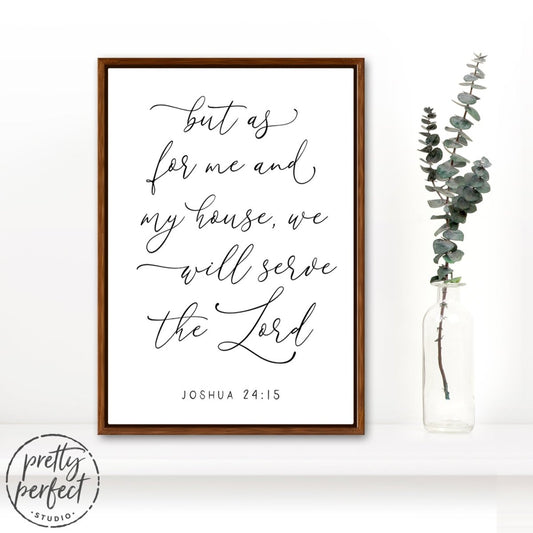 but as
for me and
my house, we
will serve
the Lord
JOSHUA 24:15
pretty
perfect
· STUDIO ·